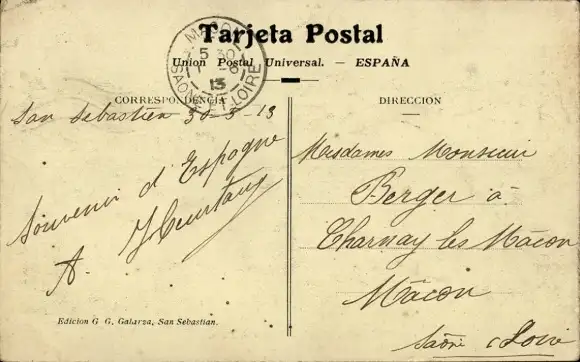 Tarjeta Postal
Union Postal Universal. — ESPAÑA
MACON
5 30
1 - 6
13
SAONE-ET-LOIRE
CORRESPONDENCIA
San Sebastien 30-5-13
Souvenir d'Espagne
A.
Edicion G. G. Galarza, San Sebastian.
DIRECCION
Mesdames Monsieur
Berger à
Charnay les Mâcon
Mâcon
Saône Loire